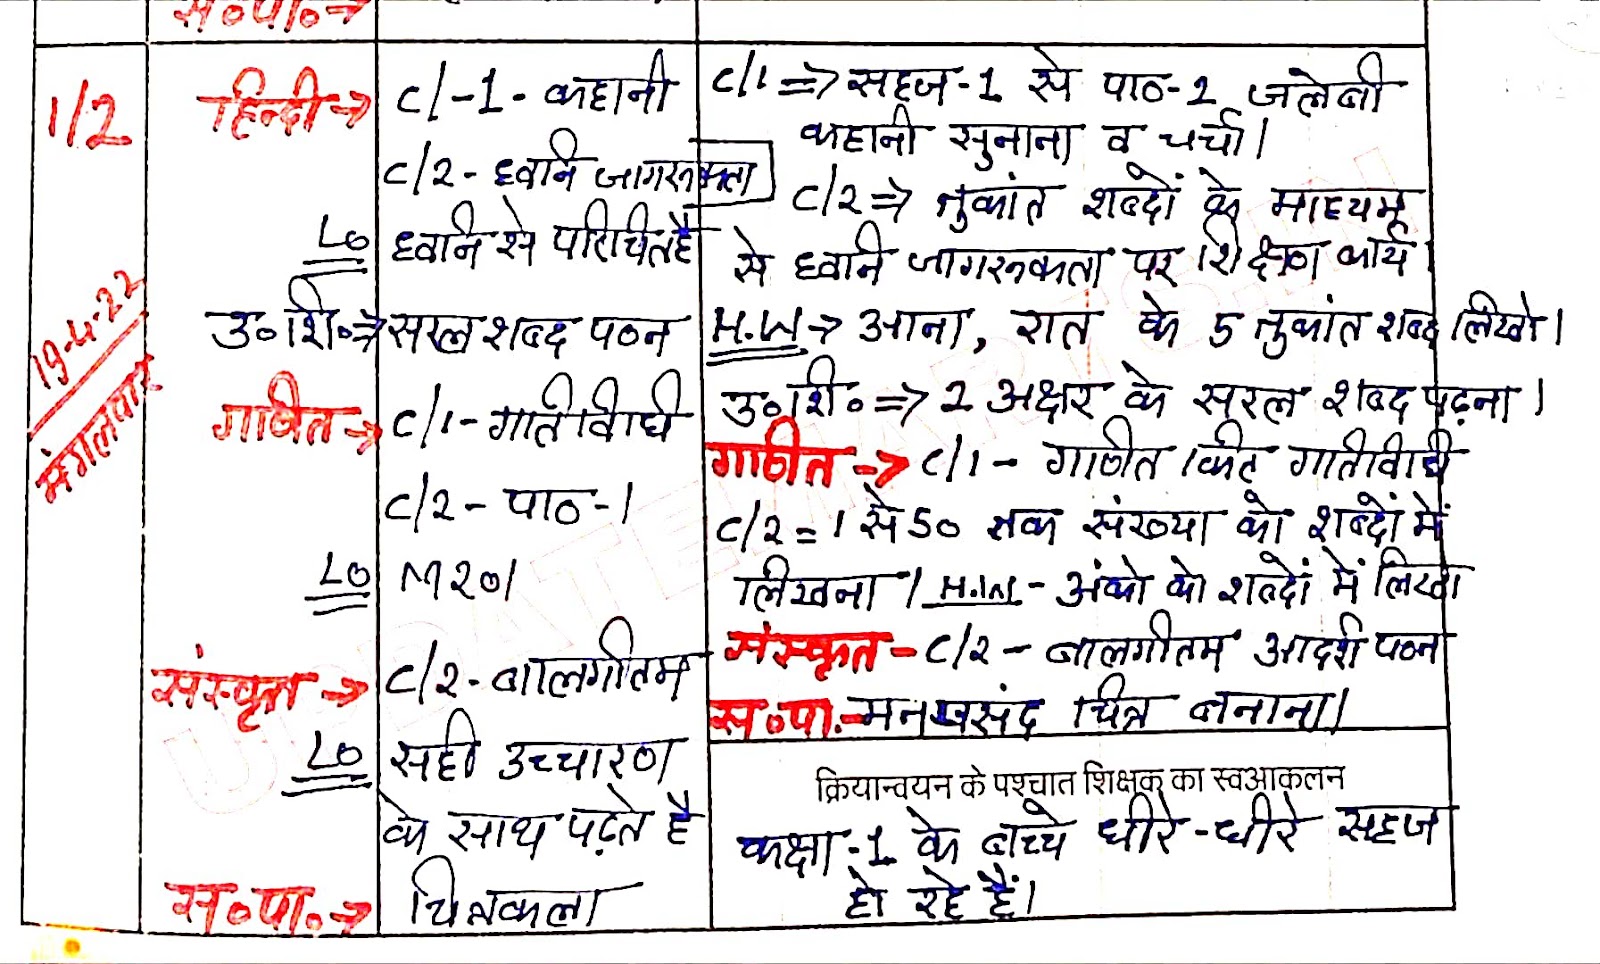 स०पा०→
1/2
19-4-22
मंगलवार
हिन्दी→
C/-1- कहानी
C/2- ध्वनि जागरूकता
LO ध्वनि से परिचित है
उ०शि०→ सरल शब्द पठन
गणित→ C/1- गतिविधि
C/2- पाठ-1
LO M201
संस्कृत→ C/2- बालगीतम
LO सही उच्चारण
के साथ पढ़ते है
स०पा०→ चित्रकला
C/1 ⇒ सहज-1 से पाठ-2 जलेबी
कहानी सुनाना व चर्चा।
C/2 ⇒ तुकांत शब्दों के माध्यम
से ध्वनि जागरूकता पर शिक्षण कार्य।
H.W → आना, रात के 5 तुकांत शब्द लिखो।
उ०शि० ⇒ 2 अक्षर के सरल शब्द पढ़ना।
गणित → C/1 - गणित किट गतिविधि
C/2 = 1 से 50 तक संख्या को शब्दों में
लिखना। H.W - अंको को शब्दों में लिखो
संस्कृत - C/2 - बालगीतम आदर्श पठन
स०पा.- मनपसंद चित्र बनाना।
क्रियान्वयन के पश्चात शिक्षक का स्वआकलन
कक्षा-1 के बच्चे धीरे-धीरे सहज
हो रहे हैं।